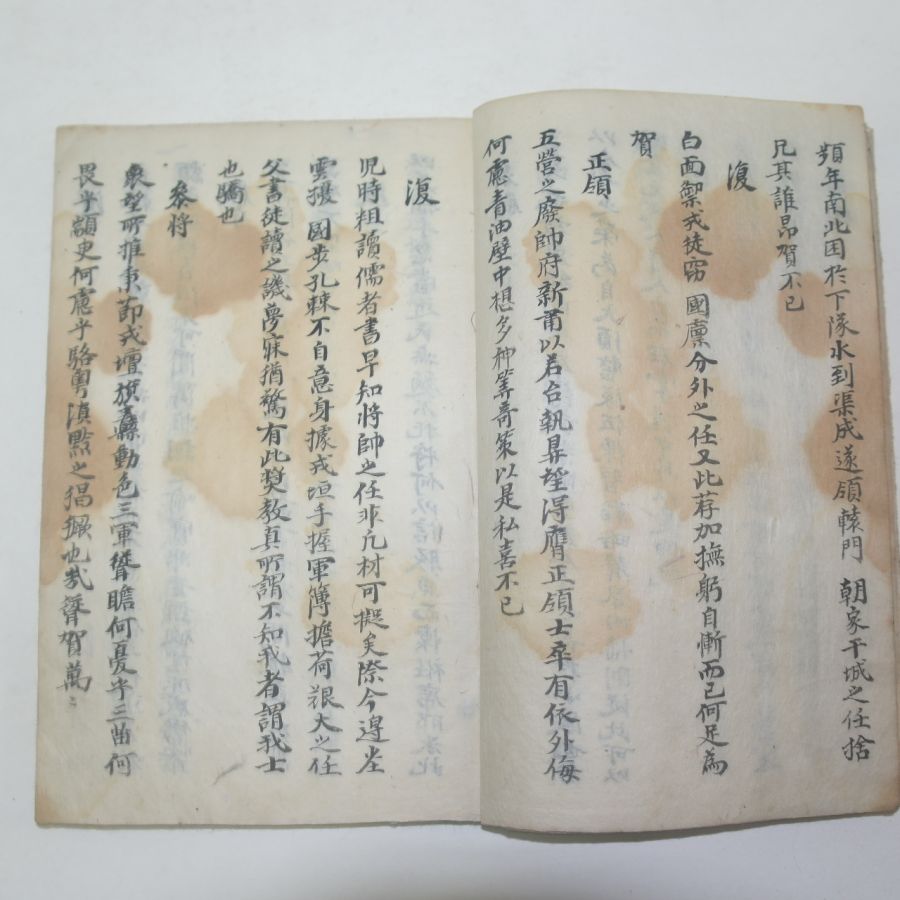 頻年南北困於下隊水到渠成遂領轅門 朝家干城之任捨
凡其誰昂賀不已
復
白面禦戎徒竊 國廩分外之任又此荐加撫躬自慚而已何足為
賀
正領
五營之廢帥府新莆以若台執昇望得膺正領士卒有依外侮
何慮青油壁中想多神筭奇策以是私喜不已
復
児時粗讀儒者書早知將帥之任非凡材可擬矣際今邊坐
雲擾 國步孔棘不自意身據戎垣手握軍簿擔荷艱大之任
父書徒讀之譏夢寐猶驚有此奬教真所謂不知我者謂我士
也驕也
參將
衆望所推秉節戎壇旗纛動色三軍聳瞻何憂乎三苗何
畏乎顓臾何慮乎駱粤滇黔之猖獗也哉聳賀萬〻